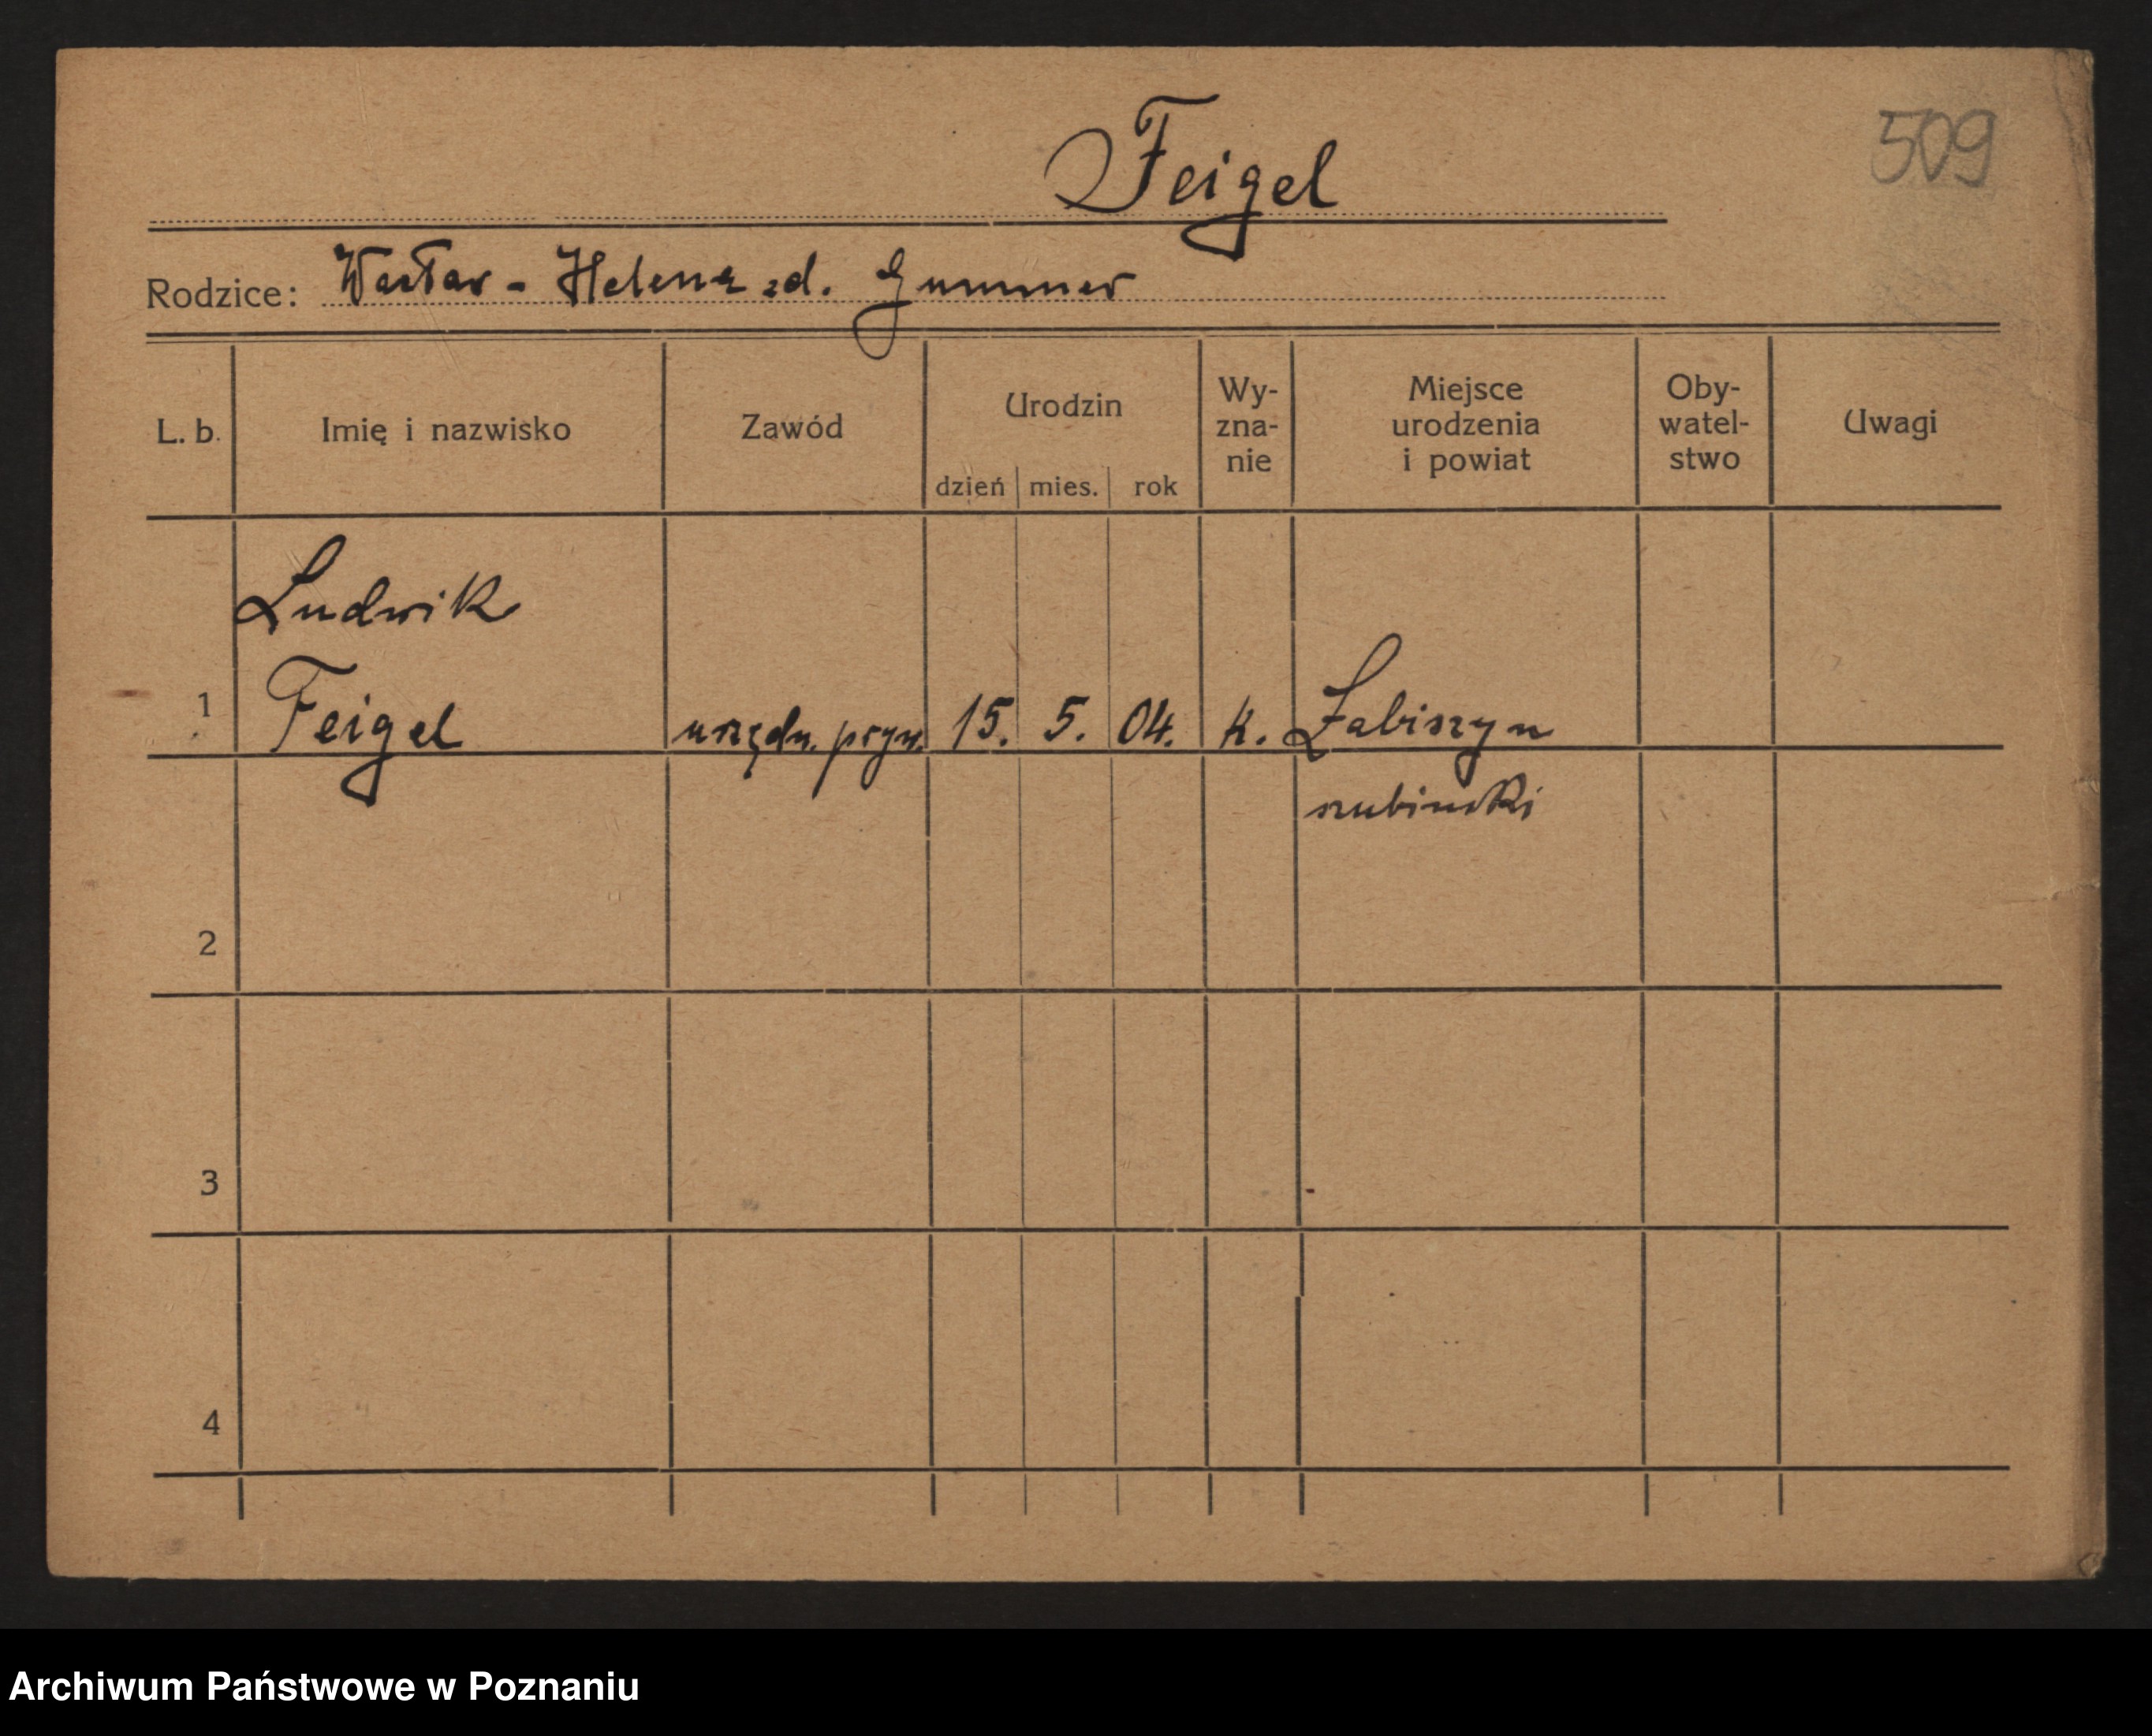 Feigel
509
Rodzice: Wacław - Helena zd. Gummer
L. b. Imię i nazwisko Zawód Urodzin dzień mies. rok Wy-zna-nie Miejsce urodzenia i powiat Oby-watel-stwo Uwagi
Ludwik
1 Feigel urzędn. pryw. 15. 5. 04. k. Łabiszyn
szubiński
2
3
4
Archiwum Państwowe w Poznaniu